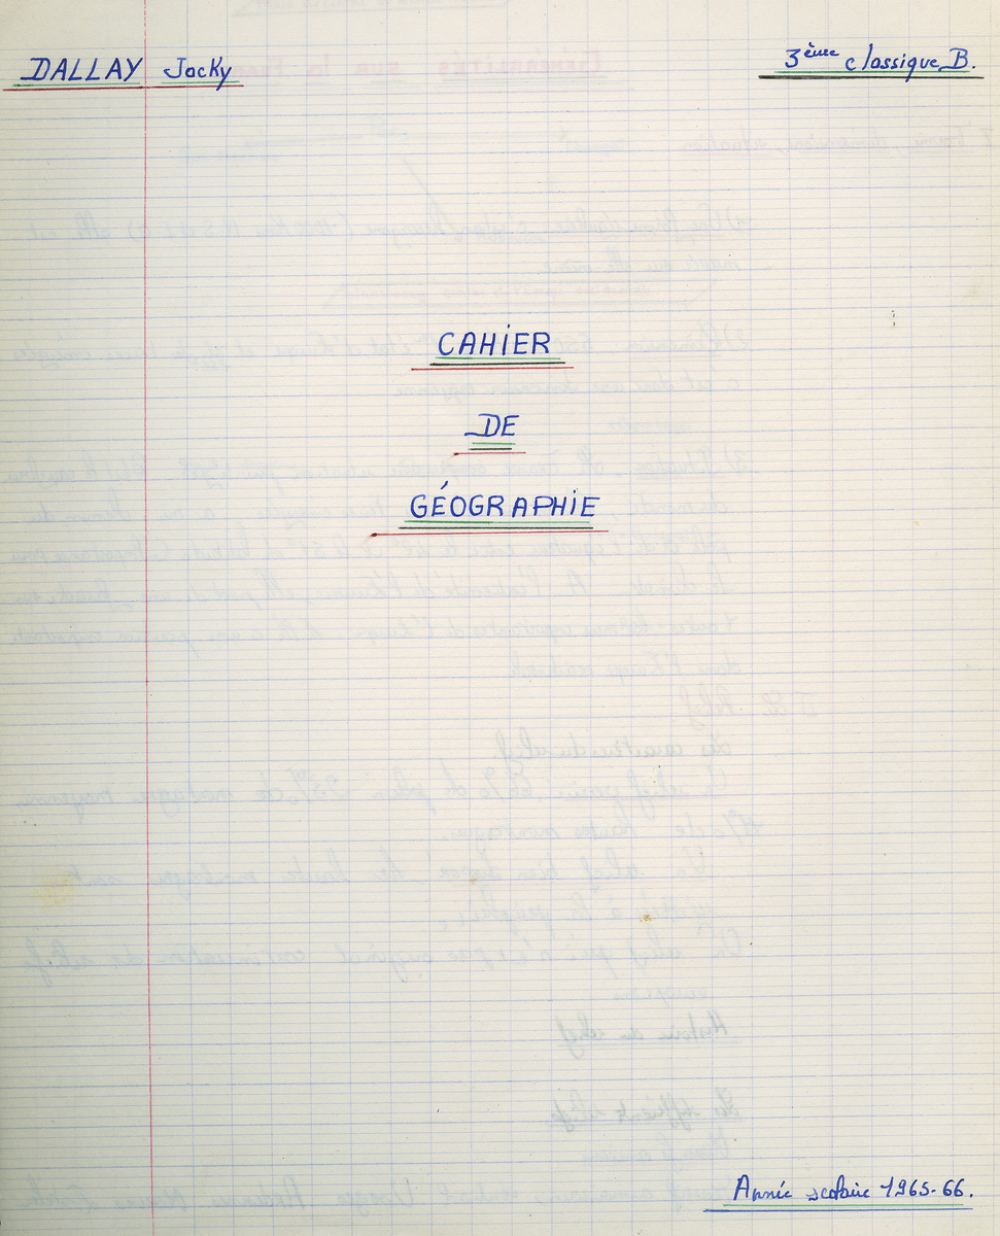 DALLAY Jacky
3ème classique B.
CAHIER
DE
GÉOGRAPHIE
Année scolaire 1965-66.